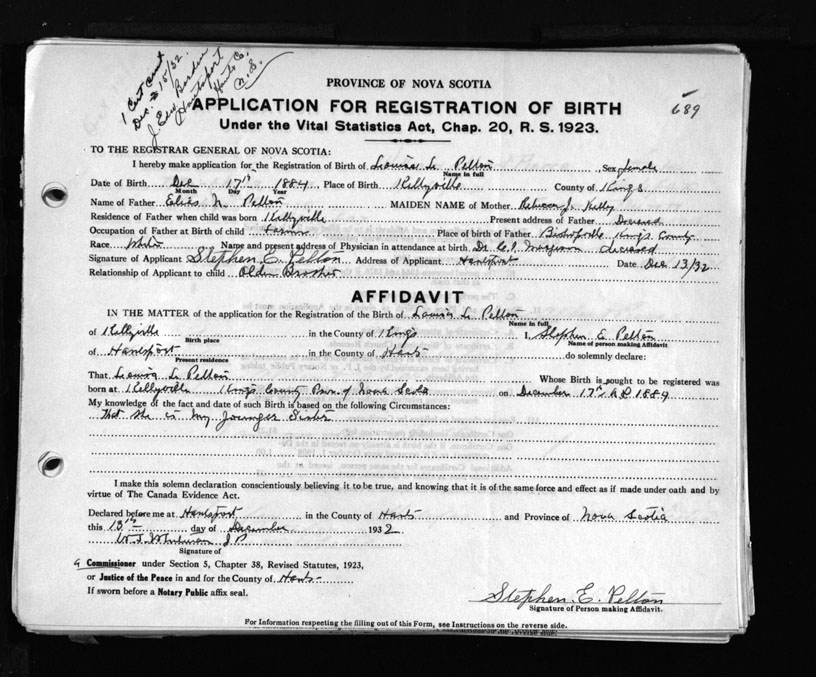 1 Cert Count
Dec. 15/32
J. Borden
Hantsport
Hants Co.
N. S.
689
PROVINCE OF NOVA SCOTIA
APPLICATION FOR REGISTRATION OF BIRTH
Under the Vital Statistics Act, Chap. 20, R. S. 1923.
TO THE REGISTRAR GENERAL OF NOVA SCOTIA:
I hereby make application for the Registration of Birth of Louisa L. Pelton, Sex female
Name in full
Date of Birth Dec 17th 1884 Place of Birth Kellyville County of Kings
Month Day Year
Name of Father N. Pelton MAIDEN NAME of Mother Rebecca J. Kelly
Residence of Father when child was born Kellyville Present address of Father Deceased
Occupation of Father at Birth of child Farmer Place of birth of Father Bishopville Kings County
Race White Name and present address of Physician in attendance at birth Dr. deceased
Signature of Applicant Stephen E. Pelton Address of Applicant Hantsport Date Dec 13/32
Relationship of Applicant to child Older Brother
AFFIDAVIT
IN THE MATTER of the application for the Registration of the Birth of Louisa L. Pelton
Name in full
of Kellyville in the County of Kings I, Stephen E. Pelton
Birth place Name of person making Affidavit
of Hantsport in the County of Hants do solemnly declare:
Present residence
That Louisa L. Pelton Whose Birth is sought to be registered was
born at Kellyville Kings County Prov. of Nova Scotia on December 17th A D 1884
My knowledge of the fact and date of such Birth is based on the following Circumstances:
That she is my Younger Sister
I make this solemn declaration conscientiously believing it to be true, and knowing that it is of the same force and effect as if made under oath and by
virtue of The Canada Evidence Act.
Declared before me at Hantsport in the County of Hants and Province of Nova Scotia
this 13th day of December 1932
J P
Signature of
A Commissioner under Section 5, Chapter 38, Revised Statutes, 1923,
or Justice of the Peace in and for the County of Hants
If sworn before a Notary Public affix seal.
Stephen E. Pelton
Signature of Person making Affidavit.
For Information respecting the filling out of this Form, see Instructions on the reverse side.